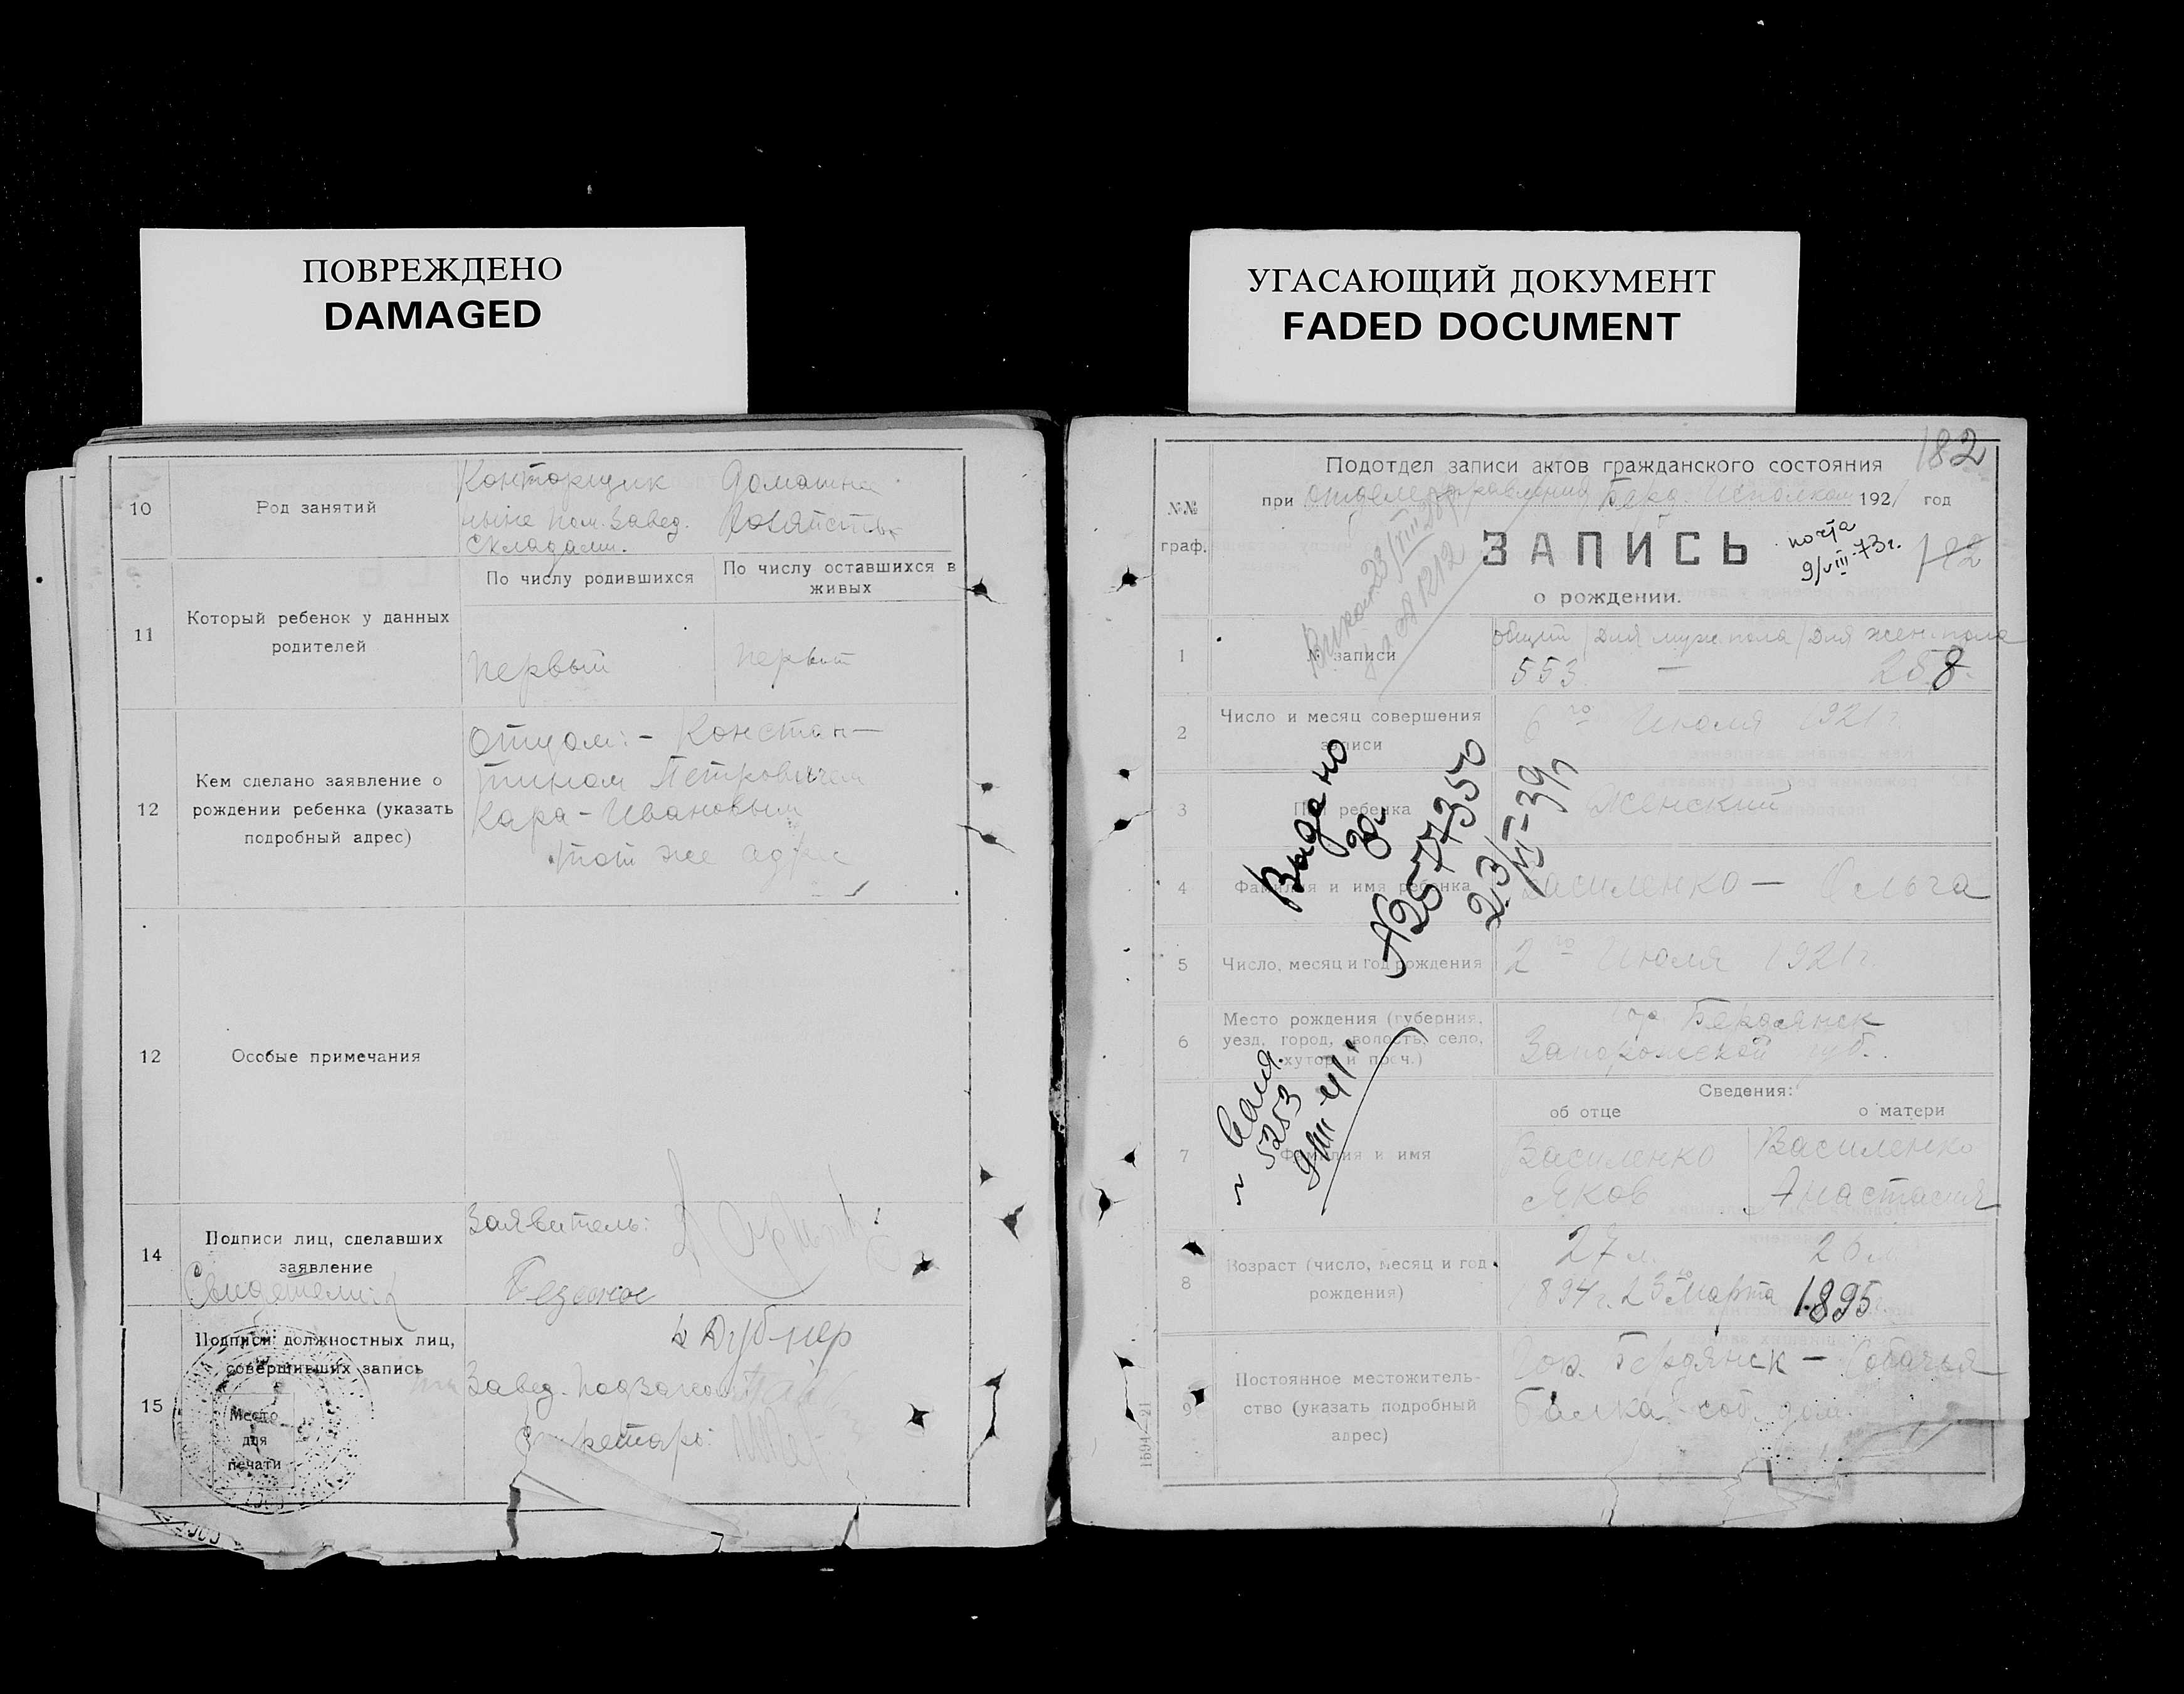 ПОВРЕЖДЕНО
DAMAGED
10
Род занятий
Конторщик
ныне пом. завед.
складами.
Домашне
хозяйство
11
Который ребенок у данных
родителей
По числу родившихся
По числу оставшихся в
живых
первый
первый
12
Кем сделано заявление о
рождении ребенка (указать
подробный адрес)
Отцом:- Констан-
тином Петровичем
Кара-Ивановым
тот же адрес
12
Особые примечания
14
Подписи лиц, сделавших
заявление
Свидетели:
Заявитель:
15
Подписи должностных лиц,
совершивших запись
Место
для
печати
Дубнер
Завед. подзагсом
Секретарь:
УГАСАЮЩИЙ ДОКУМЕНТ
FADED DOCUMENT
182
Подотдел записи актов гражданского состояния
при отделе управления Берд. Исполком 1921 год
№№
граф.
ЗАПИСЬ
о рождении.
почта
9/VIII-73г.
182
№ 1212
1
№ записи
общий / для муж. пола / для жен. пола
553 — 258
2
Число и месяц совершения
записи
6го Июля 1921 г.
3
Пол ребенка
Женский
4
Фамилия и имя ребенка
Василенко — Ольга
5
Число, месяц и год рождения
2го Июля 1921 г.
6
Место рождения (губерния,
уезд, город, волость, село,
хутор и проч.)
гор. Бердянск
Запорожской губ.
Сведения:
об отце
о матери
7
Фамилия и имя
Василенко
Яков
Василенко
Анастасия
8
Возраст (число, месяц и год
рождения)
27 л.
26 л.
1894 г. 25го Марта
1895
9
Постоянное местожитель-
ство (указать подробный
адрес)
Гор. Бердянск — Собачья
балка соб. дом.
Выдано
№2577350
23/VI-39г
5253
9/III-41г
1594—21